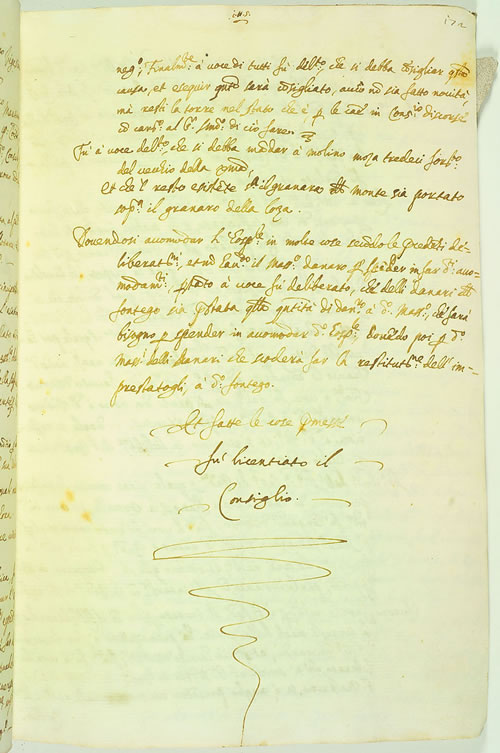 172
neg.; Finalm.te à voce di tutti fù delib.to che si debba consigliar q.ta
causa, et esequir q.to sarà consigliato, aciò nō sia fatto novità,
mà resti la torre nel stato che è p le in discorse
di ciò fare.
Fù à voce delib.to che si debba mandar à molino moza tredeci form.to
del vecchio della
et che'l resto esiste il granara monte sia portato
sop.a il granaro della loza.
Dovendosi accomodar in molte cose secōdo le p̄cedēti de-
liberat.ni, et nō il Mas.o danaro p spēder in far d.i acco-
modam.ti, p.tanto à voce fù deliberato, che delli danari
fontego sia p̄stata q.lla qntità di dan.ri à d.o Mass.o, che sarà
bisogno p spender in accomodar d.o dovēdo poi p d.o
Mass.o delli danari che scoderà far la restitut.ne dell'im-
prestatogli, à d.o fontego.
Et fatte le cose p̄messe
fù licentiato il
Consiglio.